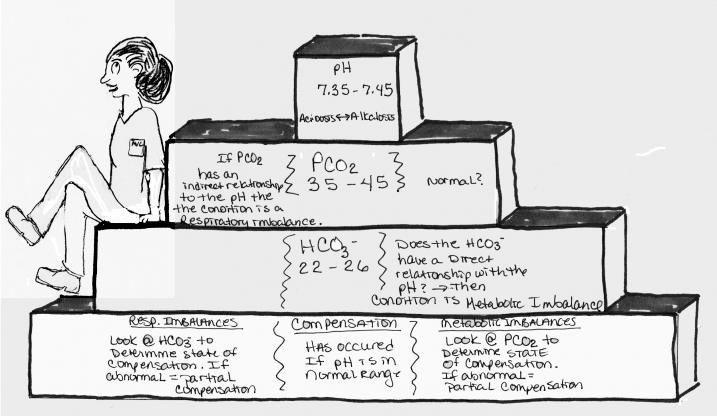 pH
7.35 - 7.45
Acidosis ↔ Alkalosis
If PCO2
has an
indirect relationship
to the pH the
the condition is a
Respiratory imbalance.
PCO2
35 - 45
Normal?
HCO3-
22 - 26
Does the HCO3-
have a Direct
relationship with the
pH? → Then
Condition is Metabolic Imbalance
Resp. Imbalances
Look @ HCO3- to
Determine state of
Compensation. If
abnormal = partial
compensation
Compensation
Has occured
If pH is in
normal Range
Metabolic Imbalances
Look @ PCO2 to
Determine STATE
Of Compensation.
If abnormal =
Partial Compensation